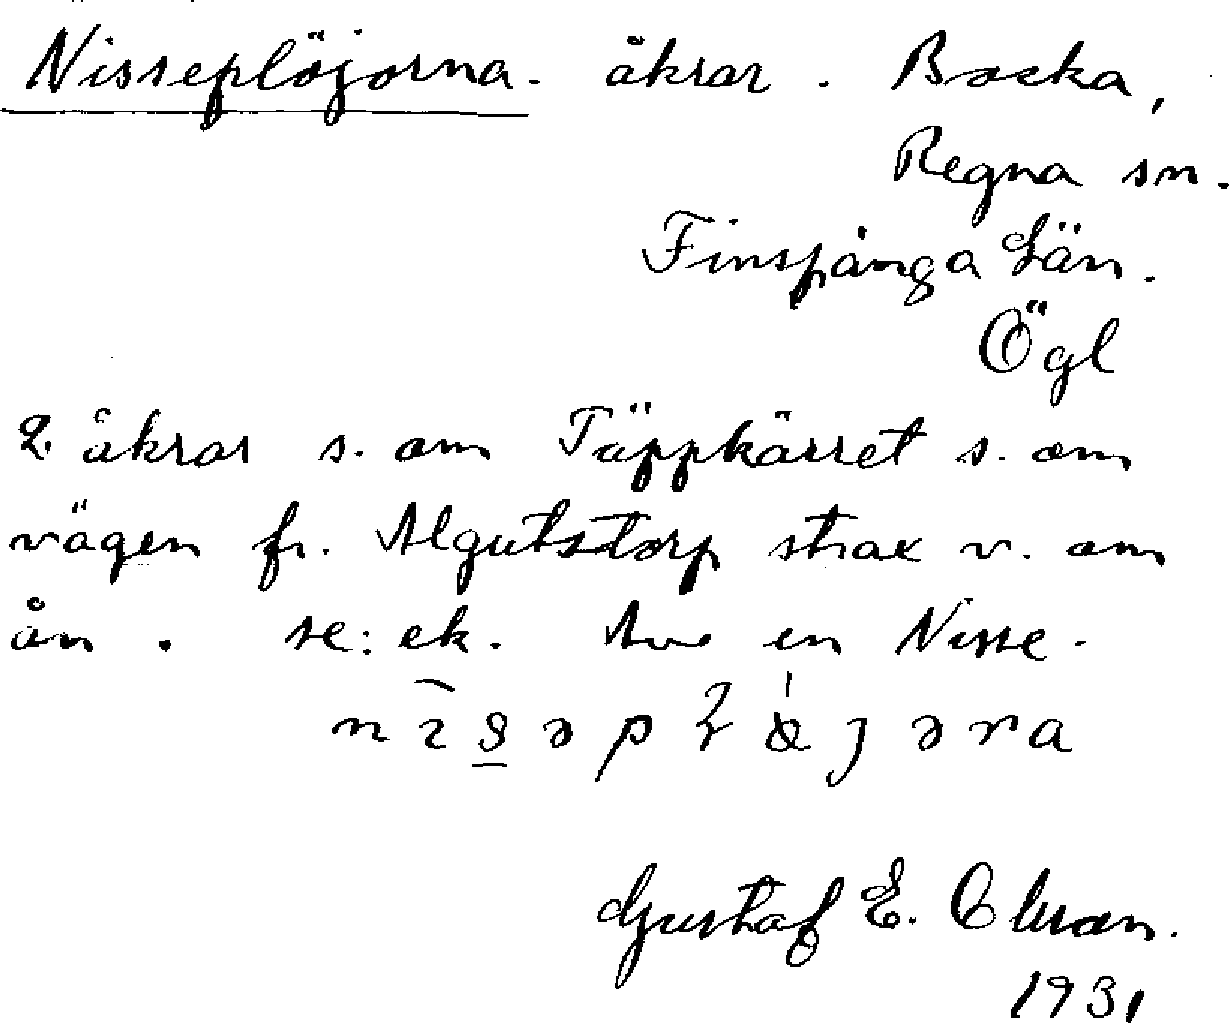 Nisseplöjorna. åkrar. Backa,
Regna sn.
Finspånga Län.
Ögl
2 åkrar s. om Täppkärret s. om
vägen fr. Algutstorp strax v. om
ån. se: ek. Ave en Nisse.
Gustaf E. Olsson.
1931